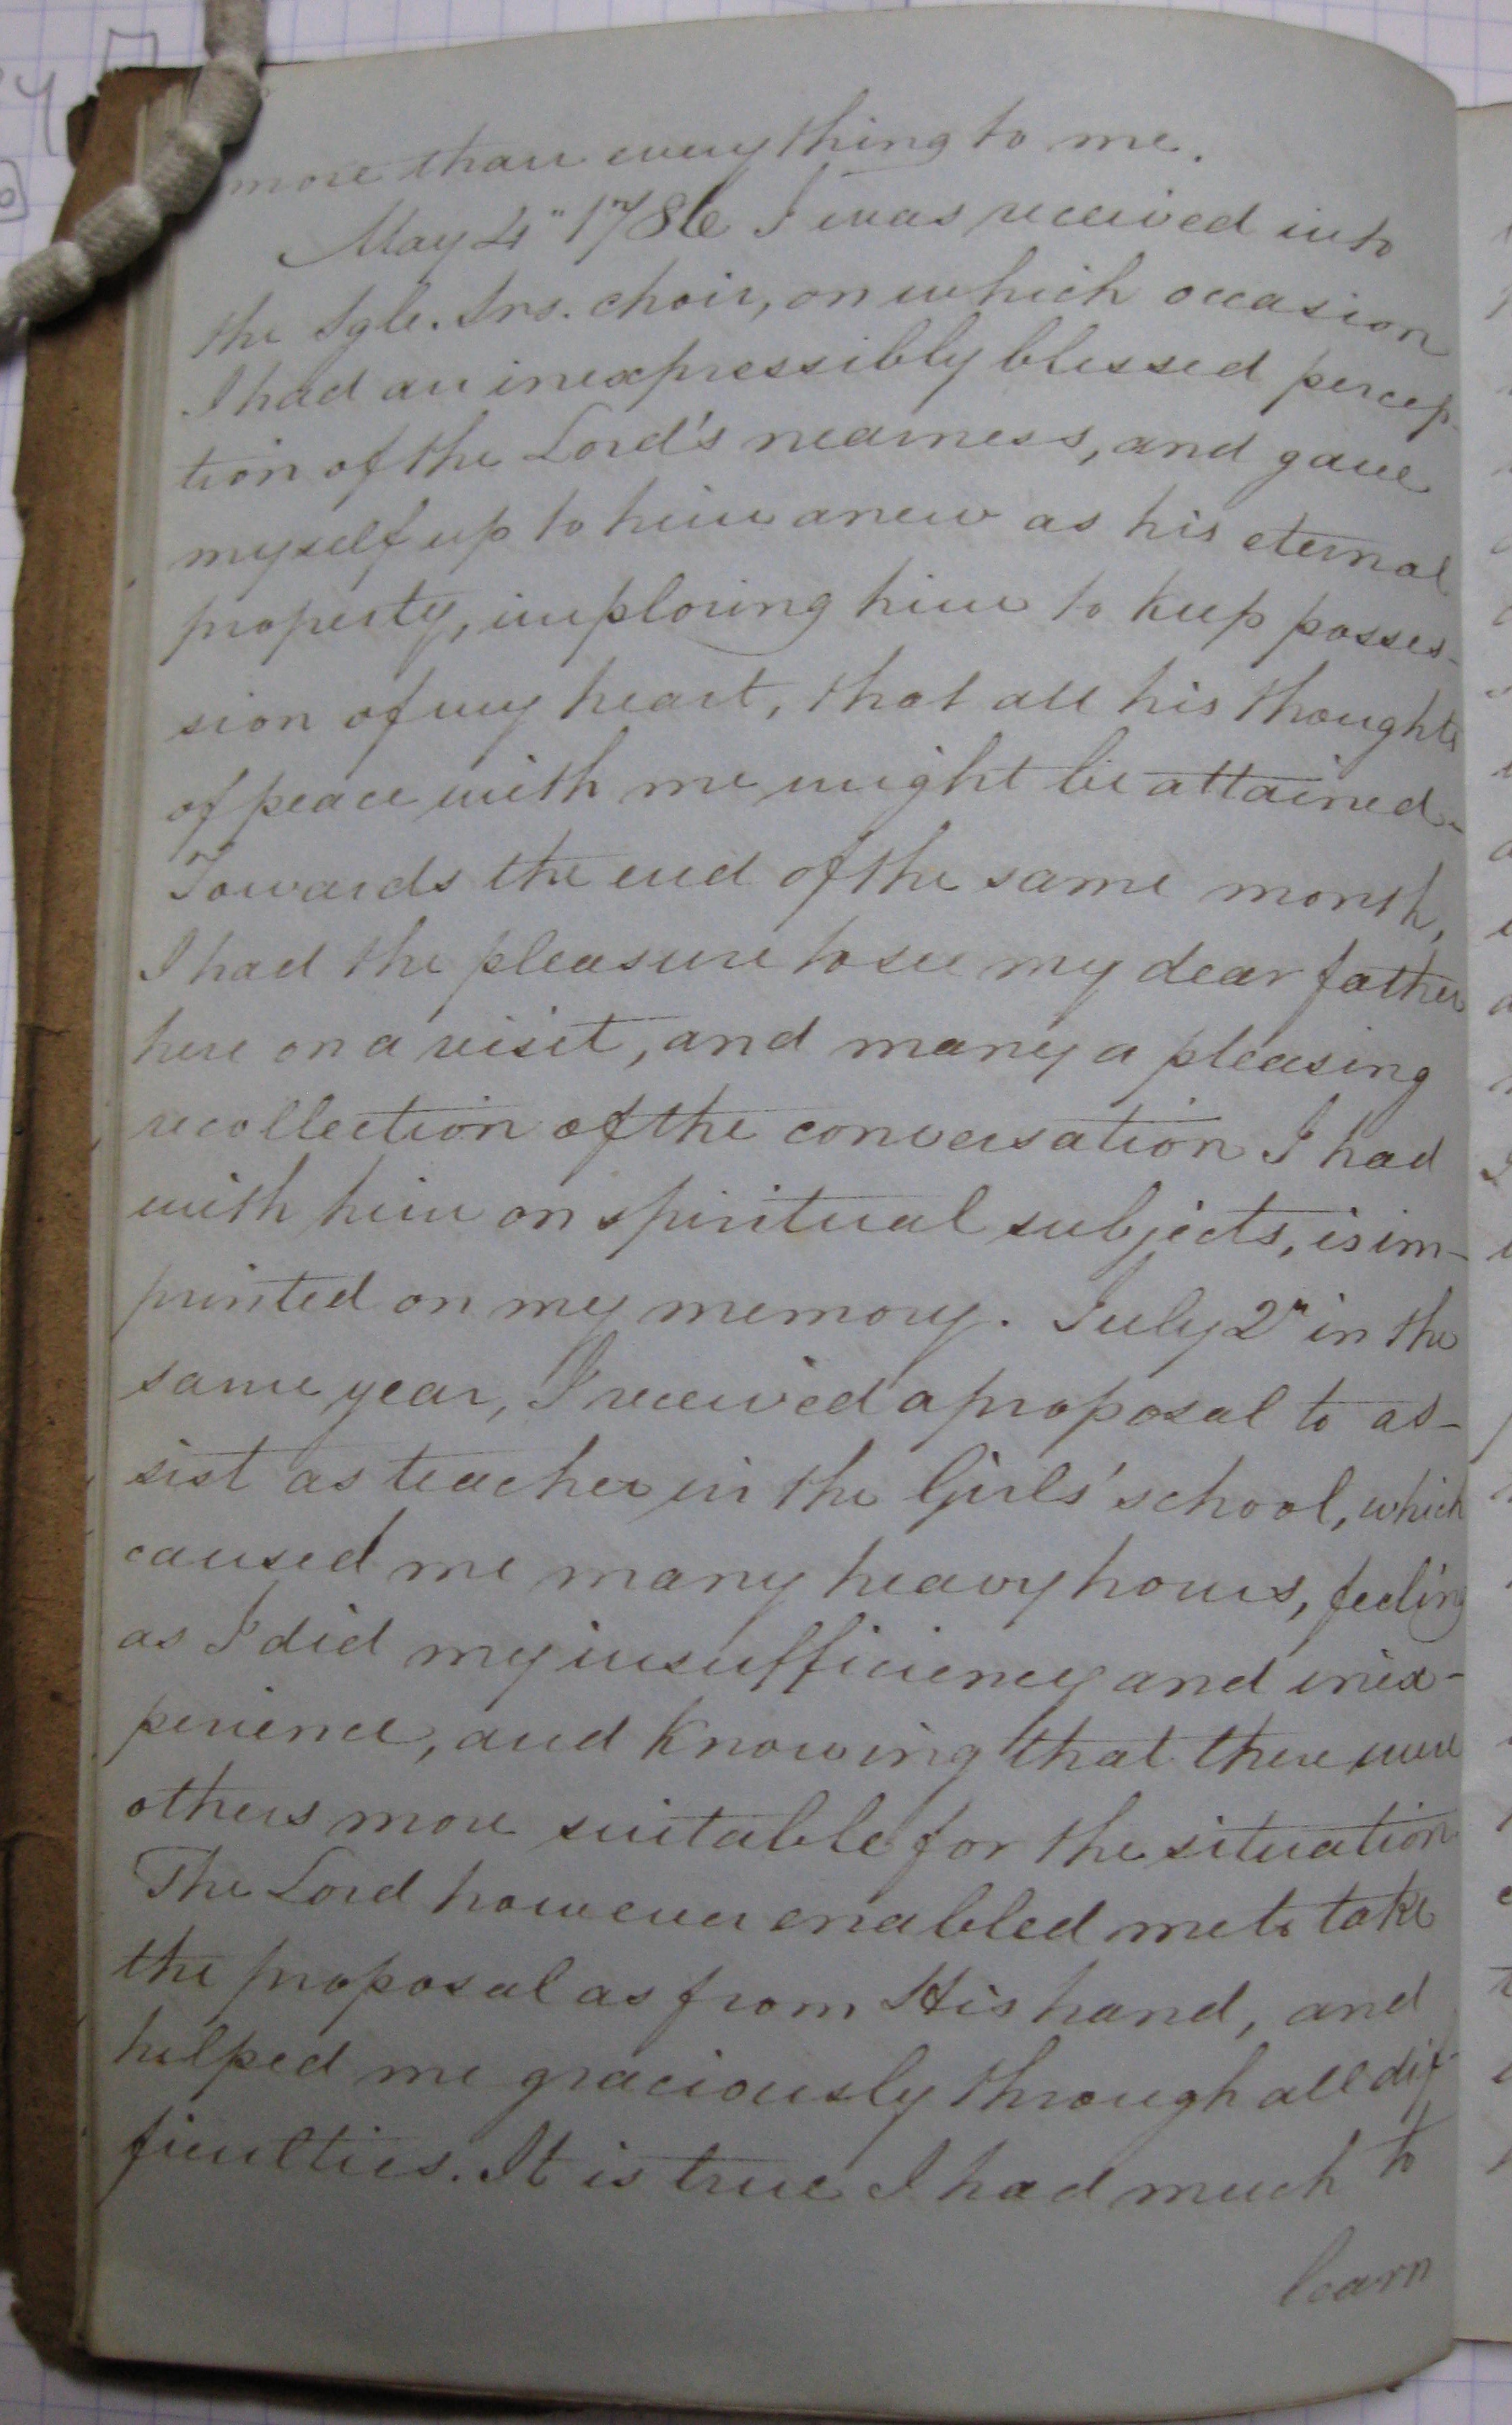 more than every thing to me.
May 4" 1786 I was received into
the Sgle. Srs. choir, on which occasion
I had an inexpressibly blessed percep-
tion of the Lord's nearness, and gave
myself up to him anew as his eternal
property, imploring him to keep posses-
sion of my heart, that all his thoughts
of peace with me might be attained.
Towards the end of the same month,
I had the pleasure to see my dear father
here on a visit, and many a pleasing
recollection of the conversation I had
with him on spiritual subjects, is im-
printed on my memory. July 2" in the
same year, I received a proposal to as-
sist as teacher in the Girls' school, which
caused me many heavy hours, feeling
as I did my insufficiency and inex-
perience, and knowing that there were
others more suitable for the situation.
The Lord however enabled me to take
the proposal as from His hand, and
helped me graciously through all dif-
ficulties. It is true I had much to
learn